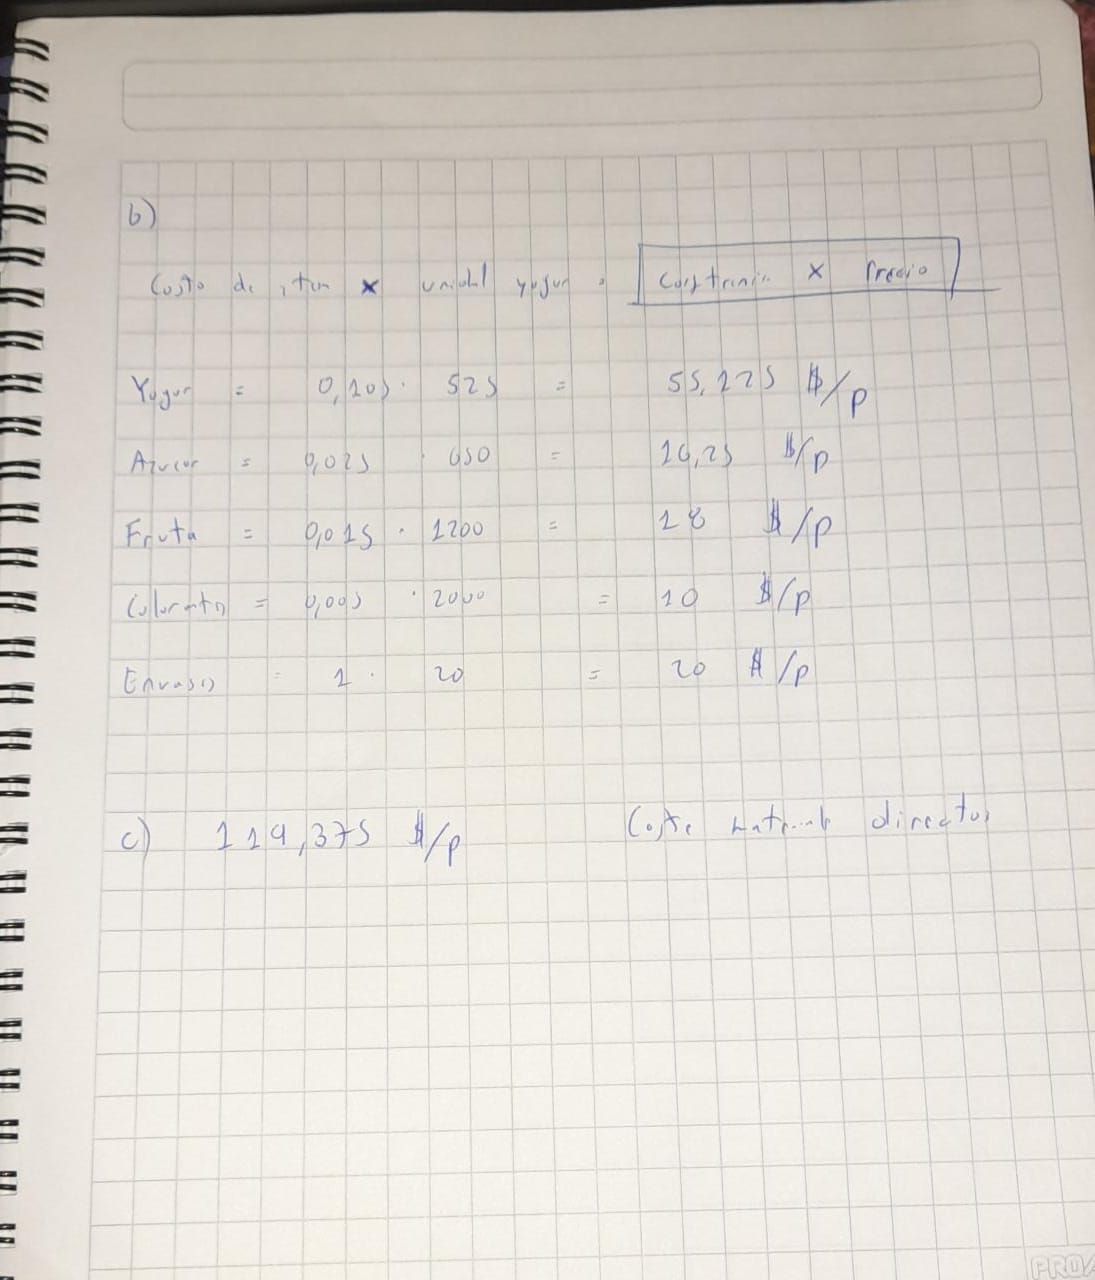 b)
Costo de item x unidad yogur = Cons trenic. x Precio
Yogur = 0,105 . 525 = 55,125 $/p
Azucar = 0,025 . 650 = 16,25 $/p
Fruta = 0,015 . 1200 = 18 $/p
Colorante = 0,005 . 2000 = 10 $/p
Envases = 1 . 20 = 20 $/p
c) 119,375 $/p Coste materiales directos
PRO